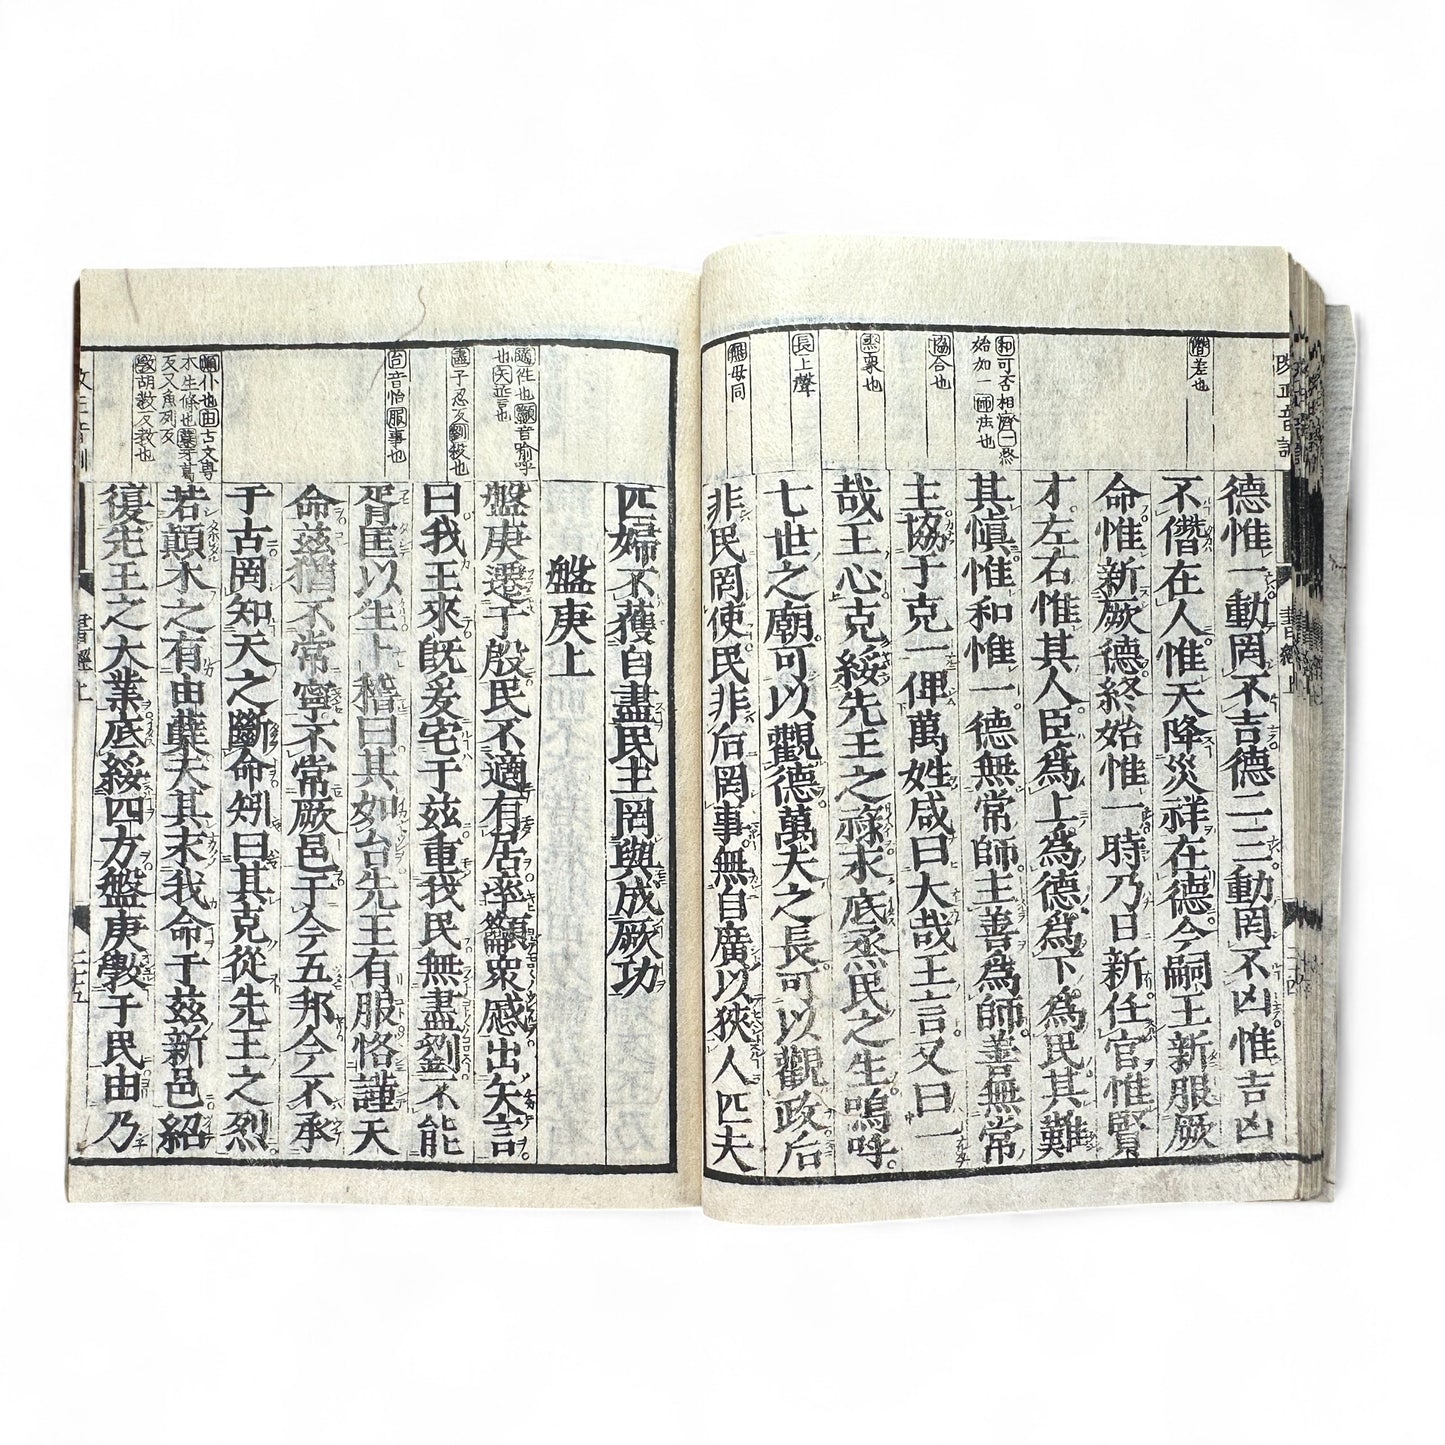 僭差也
和可否相濟一烝
始如一師法也
協合也
烝衆也
長上聲
無毋同
德惟一動罔不吉德二三動罔不凶惟吉凶
不僭在人惟天降災祥在德今嗣王新服厥
命惟新厥德終始惟一時乃日新任官惟賢
才左右惟其人臣爲上爲德爲下爲民其難
其愼惟和惟一德無常師主善爲師善無常
主協于克一俾萬姓咸曰大哉王言又曰一
哉王心克綏先王之祿永底烝民之生嗚呼
七世之廟可以觀德萬夫之長可以觀政后
非民罔使民非后罔事無自廣以狹人匹夫
適徃也籲音喻呼
也矢誓言也
盡子忍反劉殺也
台音怡服事也
顚仆也由古文專
木生條也蘖牙葛
反又魚列反
斆胡教反教也
匹婦不獲自盡民主罔與成厥功
盤庚上
盤庚遷于殷民不適有居率籲衆慼出矢言
曰我王來旣爰宅于玆重我民無盡劉不能
胥匡以生卜稽曰其如台先王有服恪謹天
命玆猶不常寧不常厥邑于今五邦今不承
于古罔知天之斷命矧曰其克從先王之烈
若顚木之有由蘖天其永我命于玆新邑紹
復先王之大業底綏四方盤庚斆于民由乃
書經上
二十五